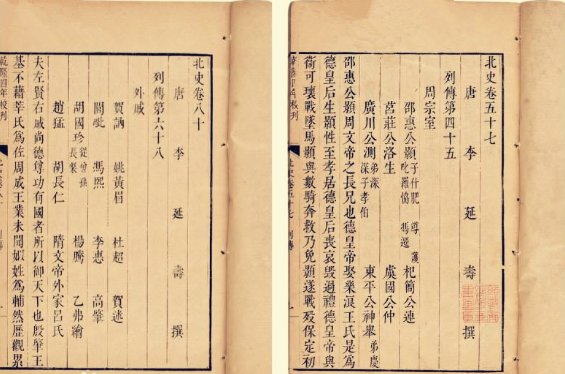 北史卷八十
唐 李 延 壽 撰
列傳第六十八
外戚
賀訥 姚黃眉 杜超 賀迷
閭毗 馮熙 李惠 高肇
胡國珍 楊騰 乙弗繪
趙猛 胡長仁 隋文帝外家呂氏
夫左賢右戚尚德尊功有國者所以御天下也殷肇王
基不藉莘氏爲佐周成王業未聞姒姓爲輔然歷觀累
北史卷五十七
唐 李 延 壽 撰
列傳第四十五
周宗室
邵惠公顥 子什肥 導 護 杞簡公連
莒莊公洛生 虞國公仲
廣川公測 弟深 深子孝伯 東平公神舉 弟慶
邵惠公顥周文帝之長兄也德皇帝娶樂浪王氏是爲
德皇后生顥性至孝居德皇后喪哀毀過禮德皇帝與
衞可瓌戰墜馬顥與數騎奔救乃免顥遂戰歿保定初